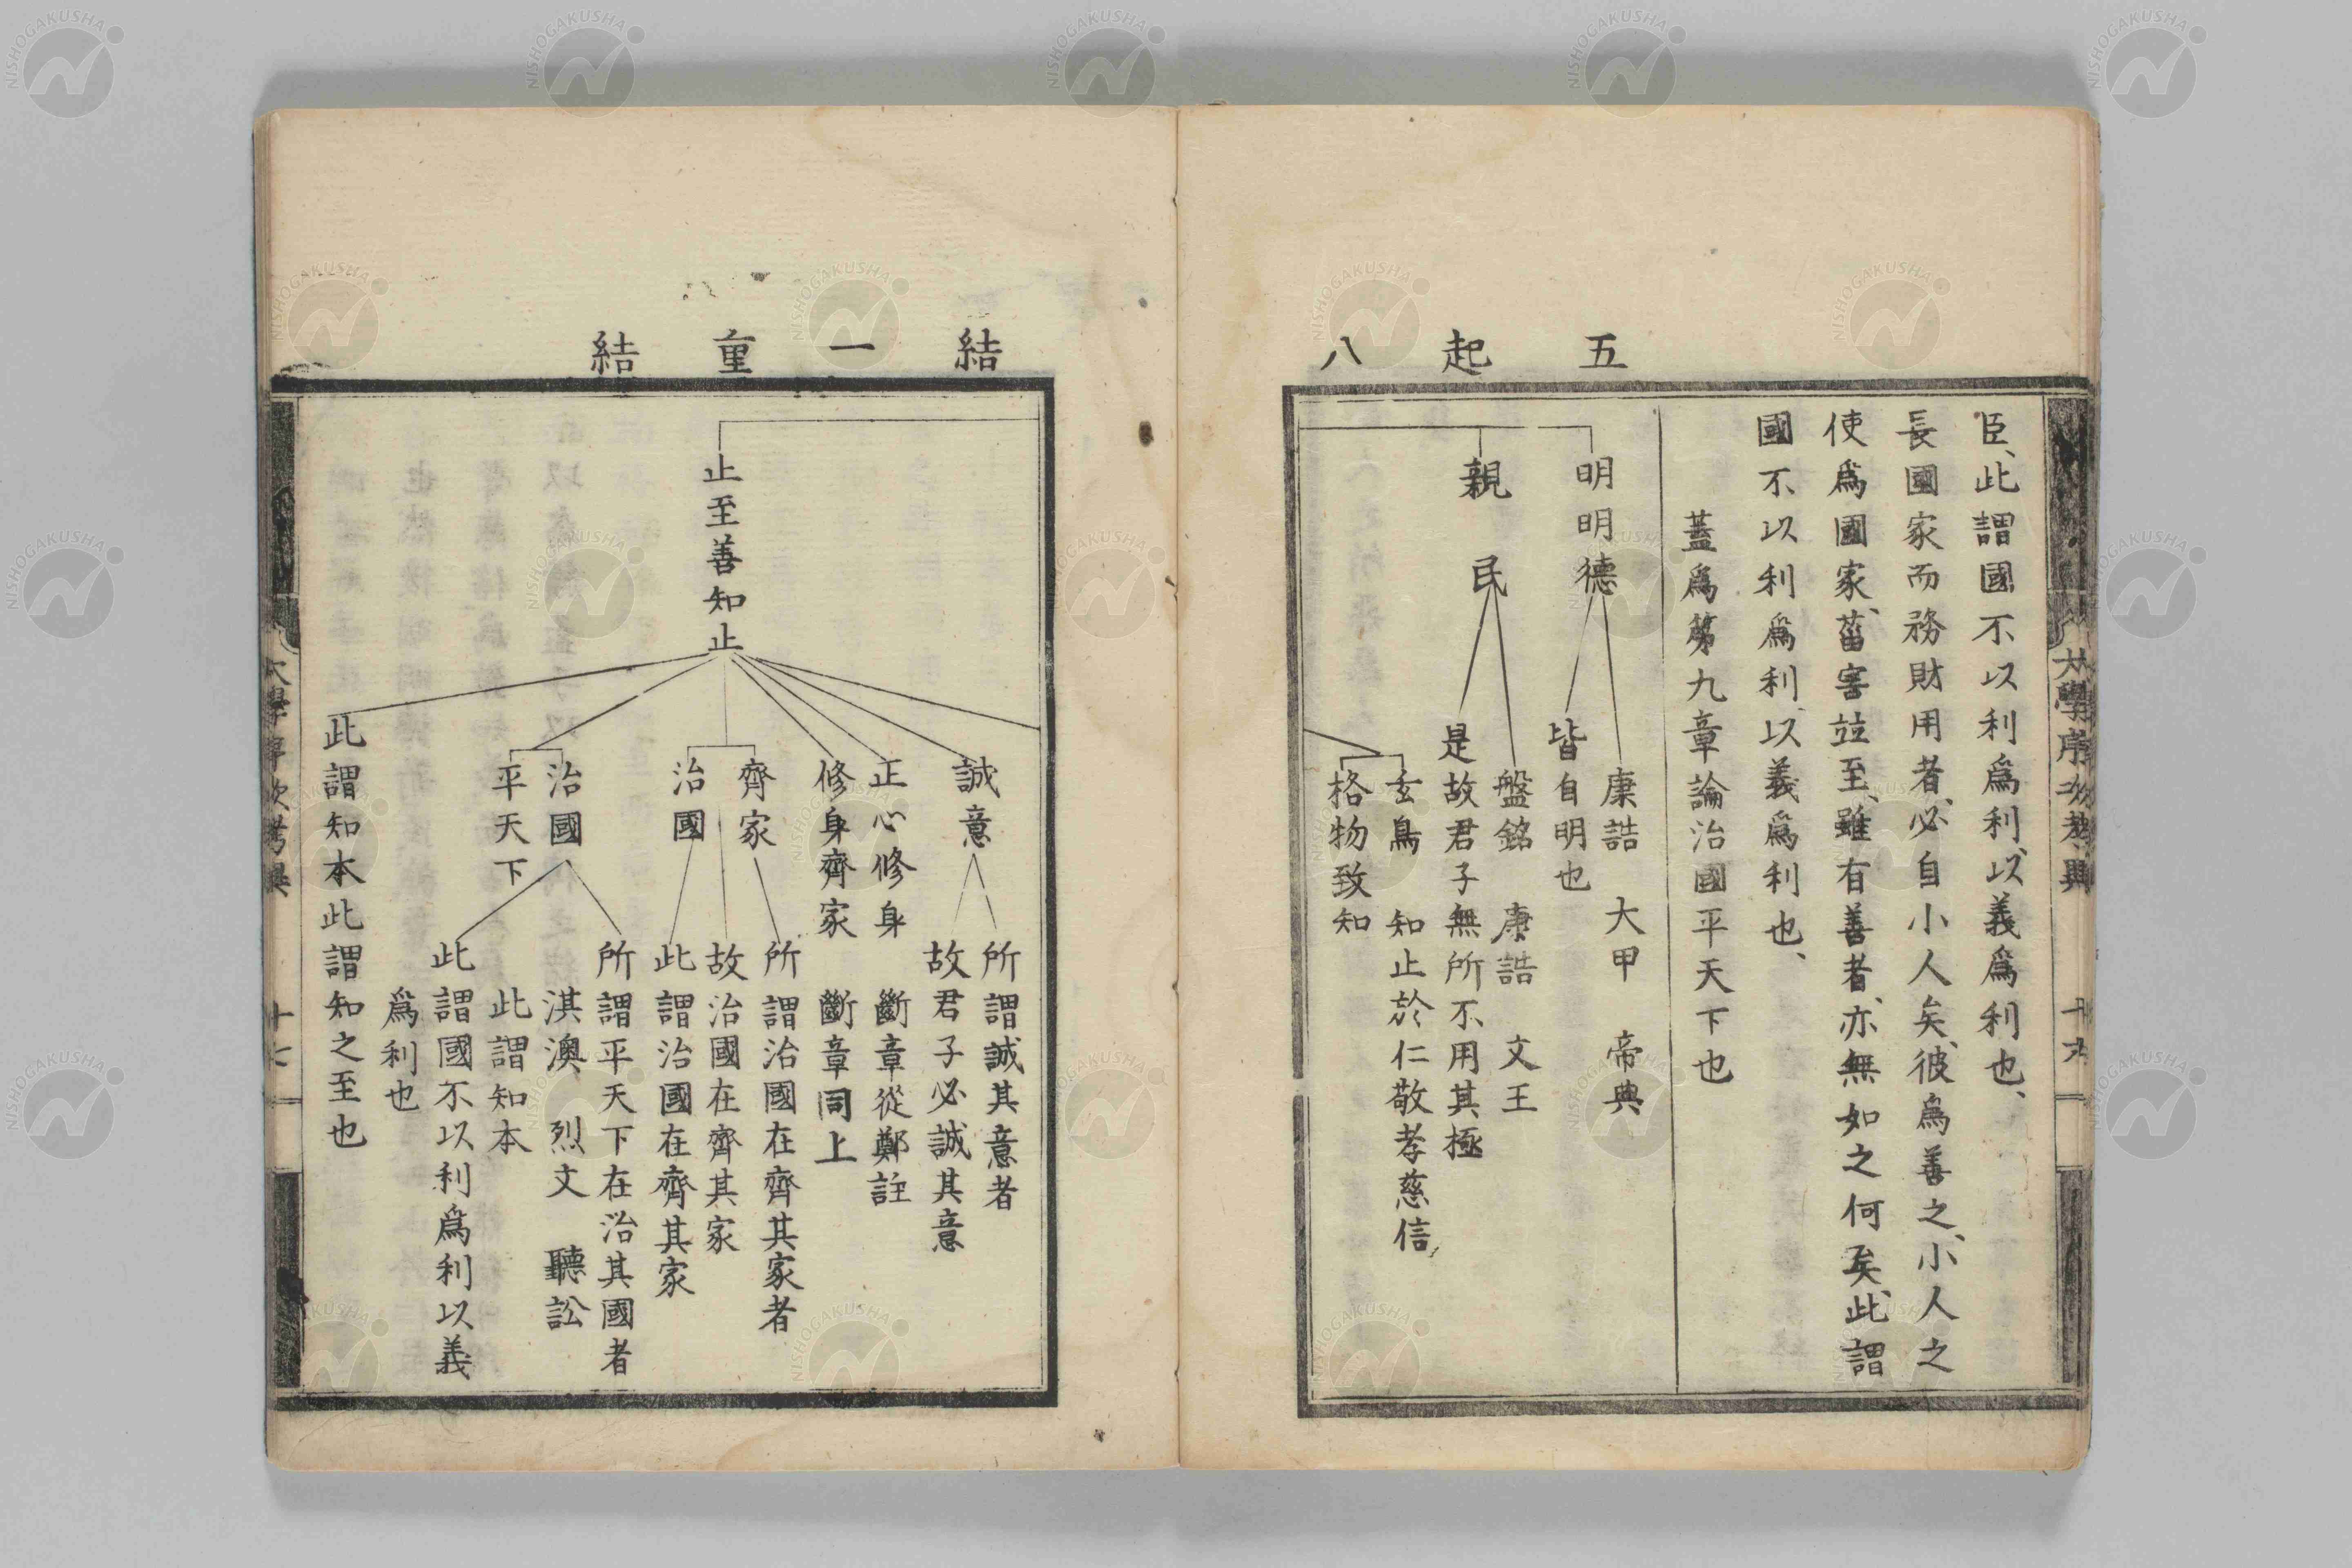 五起八
臣、此謂國不以利爲利、以義爲利也、
長國家而務財用者、必自小人矣、彼爲善之、小人之
使爲國家、菑害竝至、雖有善者、亦無如之何矣、此謂
國不以利爲利、以義爲利也、
蓋爲第九章論治國平天下也
明明德
康誥 大甲 帝典
皆自明也
親民
盤銘 康誥 文王
是故君子無所不用其極
玄鳥 知止於仁敬孝慈信
格物致知
結一重結
止至善知止
誠意
所謂誠其意者
故君子必誠其意
正心修身 斷章從鄭註
修身齊家 斷章同上
齊家
治國
所謂治國在齊其家者
故治國在齊其家
此謂治國在齊其家
治國
平天下
所謂平天下在治其國者
淇澳 烈文 聽訟
此謂知本
此謂國不以利爲利以義
爲利也
此謂知本此謂知之至也
NISHOGAKUSHA